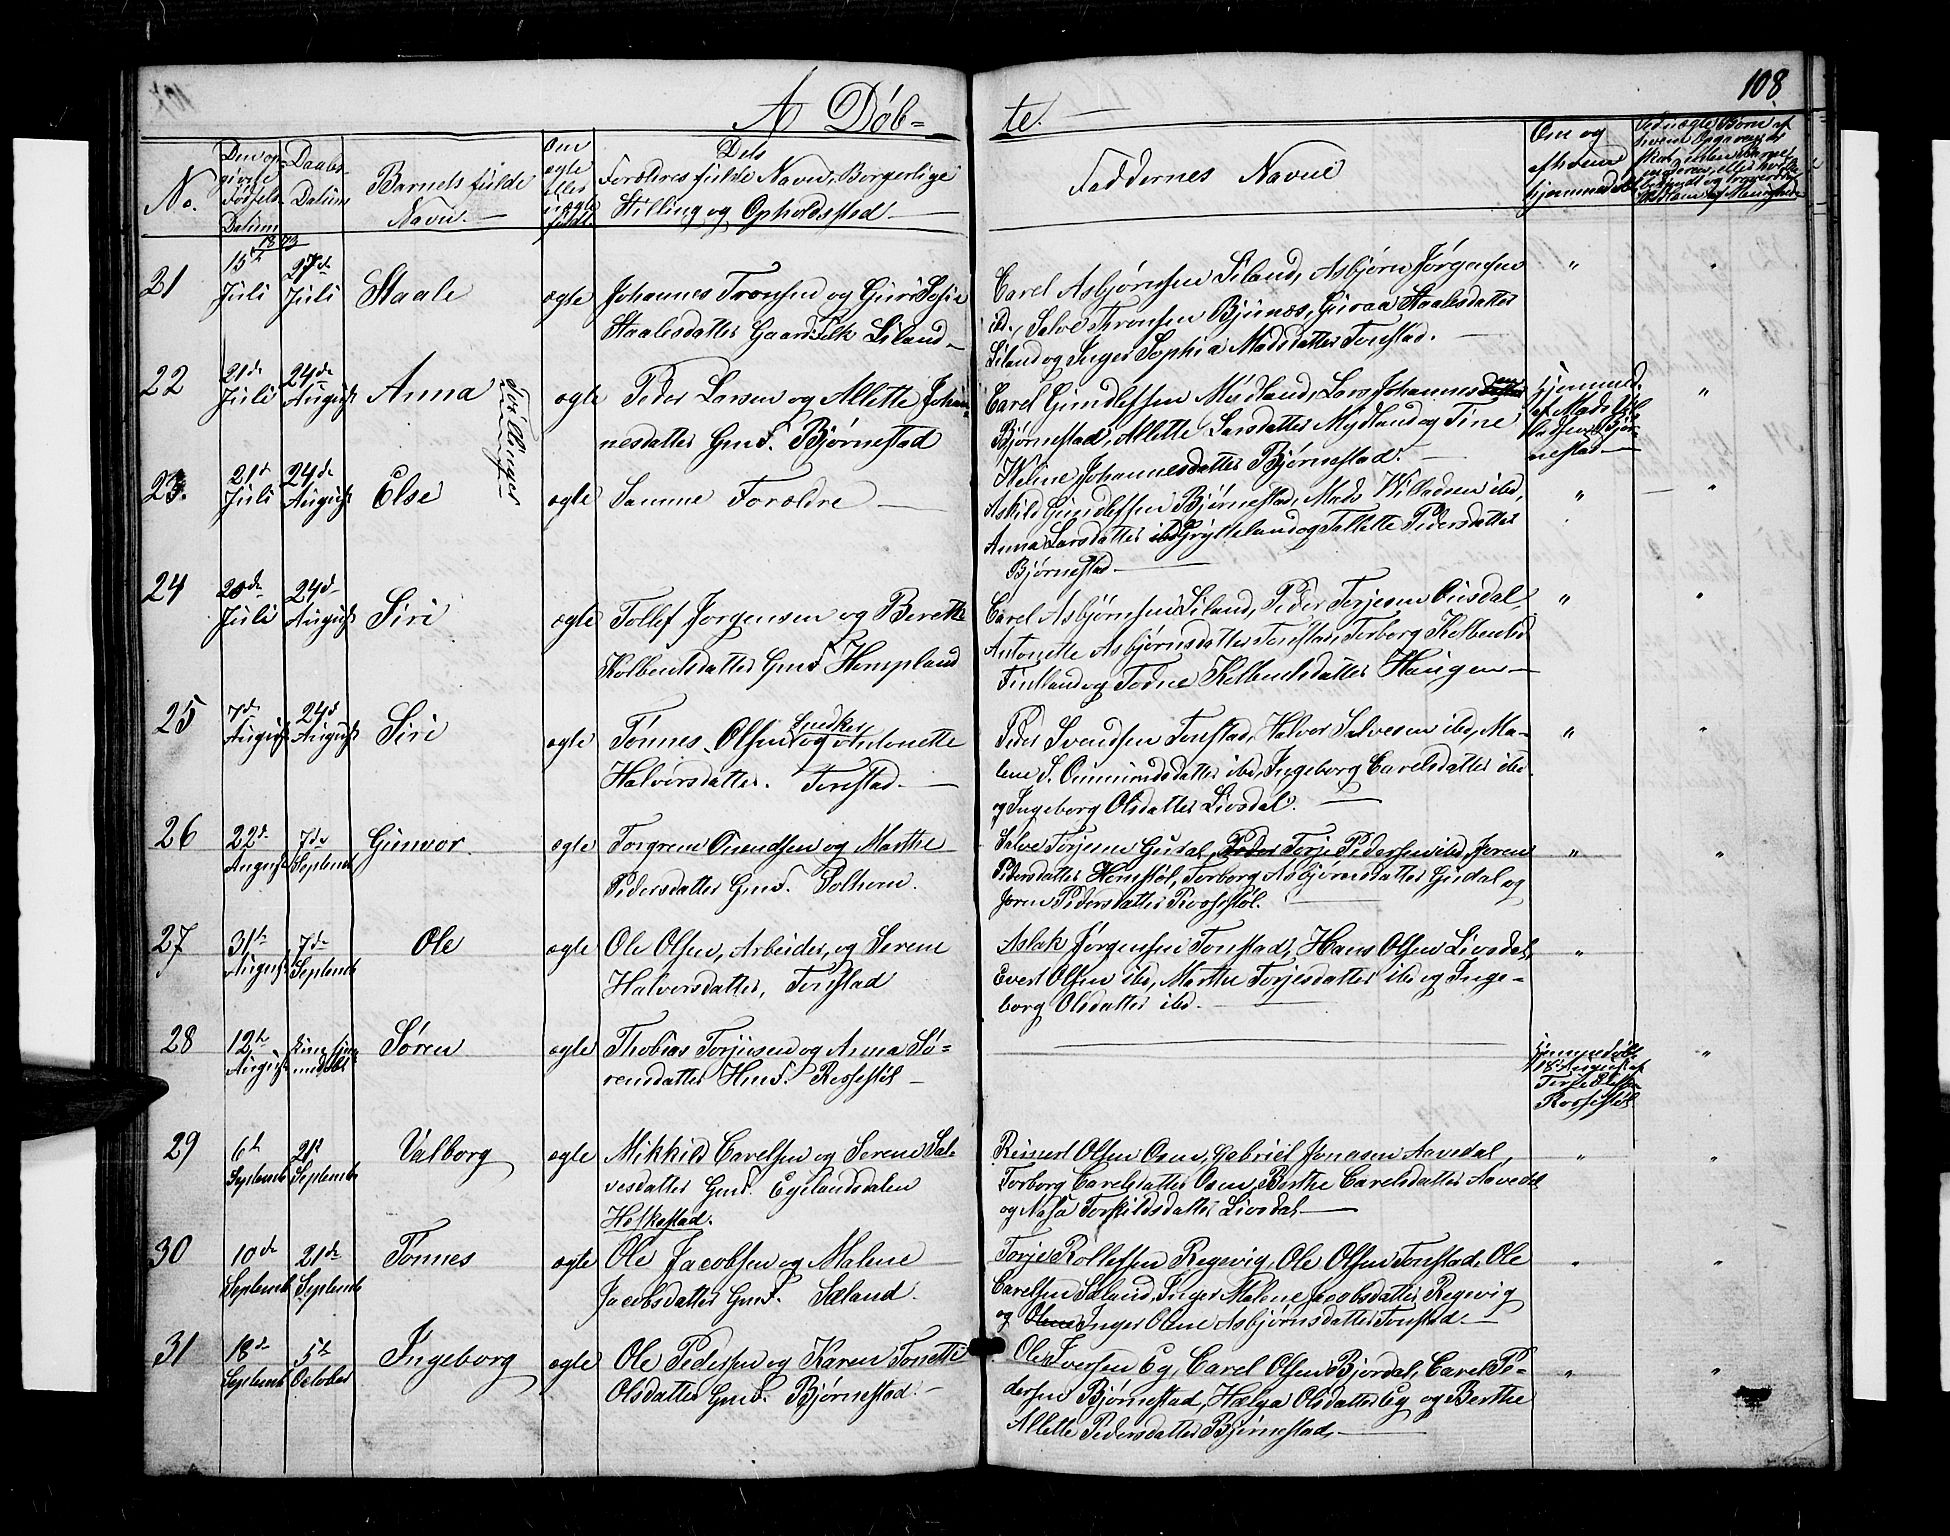 108
A Döb=
te.
No.
Den op-
givne
Födsels-
Datum
Daabs-
Datum
Barnets fulde
Navn.
Om
ægte
eller
uægte
födt.
Dets
Forældres fulde Navn, Borgerlige
Stilling og Opholdssted
Faddernes Navne
Om og
af hvem
hjemmedöbt
1873
21
15de
Juli
27de
Juli
Staale
ægte
Johannes Tronsen og Guri Sofie
Staalesdatter Gaardfolk Liland
Carel Asbjörnsen Liland, Asbjörn Jörgensen
ibd., Salve Thronsen Bjunæs, Guroa Staalesdatter
Liland og Inger Sophia Madsdatter Tonstad.
22
21de
Juli
24de
August
Anna
Tvillinger
ægte
Peder Larsen og Allette Johan-
nesdatter Gmf. Björnestad
Carel Gundlefsen Mydland, Lars Johannesen
Björnestad, Allette Larsdatter Mydland og Tine
Keline Johannesdatter Björnestad.
Hjemmed.
af Mads Vil
ladsen Björ-
nestad
23.
21d
Juli
24de
August
Else
ægte
Samme Forældre
Askild Gundlefsen Björnestad, Mads Willadsen ibd,
Anna Larsdatter Grytteland og Tallette Pedersdatter
Björnestad
24
20de
Juli
24d
August
Siri
ægte
Tollef Jörgensen og Berette
Kolbentsdatter Gmf. Hompland
Carel Asbjörnsen Liland, Peder Terjesen Ousdal,
Antonette Asbjörnsdatter Tonstad, Torborg Kolbentsd
Fintland og Todne Kolbentsdatter Haugen
25
7de
August
24d
August
Siri
ægte
Tönnes Olsen Snedker og Antonette
Halvorsdatter. Tonstad.
Peder Svendsen Tonstad, Halvor Salvesen ibd, Ma-
lene S. Ommundsdatter ibd, Ingeborg Carelsdatter ibd
og Ingeborg Olsdatter Liosdal.
26
22de
August
7de
Septemb
Gunvor
ægte
Torgrim Omdsen og Marthe
Pedersdatter Gmf. Solhom.
Salve Torjesen Gusdal, Peder Torje Pedersen ibd, Joren
Pedersdatter Homstöl, Torborg Asbjörnsdatter Gusdal og
Joren Pedersdatter Rossestöl.
27
31te
August
7de
Septemb
Ole
ægte
Ole Olsen, Arbeider, og Serene
Halvorsdatter, Tonstad
Aslak Jörgensen Tonstad, Hans Olsen Liosdal,
Evert Olsen ibd, Marthe Torjesdatter ibd og Inge-
borg Olsdatter ibd.
28
12te
August
Kun hjem
med döbt
Sören
ægte
Thobias Torjusen og Anna Sö-
rensdatter Hmf. Rossestöl
hjemmedöbt
18 August af
Rossestöl
29
6te
Septemb
21d
Septemb
Valborg
ægte
Mikkild Carelsen og Serene Sal-
vesdatter Gmf. Egelandsdalen
Helkestad.
Reinert Olsen Osen, Gabriel Jonasen Aavedal,
Torborg Carelsdatter Osen, Berthe Carelsdatter Aavedal
og Aasa Torkildsdatter Liosdal
30
10de
Septemb
21de
Septemb
Tönnes
ægte
Ole Jacobsen og Malene
Jacobsdatter Gmf. Sæland.
Torje Rollefsen Regevig, Ole Olsen Tonstad, Ole
Carelsen Sæland, Inger Malene Jacobsdatter Regevig
og Olene Inger Oline Asbjörnsdatter Tonstad.
31
18de
Septemb
5te
October
Ingeborg
ægte
Ole Pedersen og Karen Tonette
Olsdatter Gmf. Björnestad.
Ole Iversen Eg, Carel Olsen Bjordal, Carel Pe-
dersen Björnestad, Helga Olsdatter Eg og Berthe
Allette Pedersdatter Björnestad